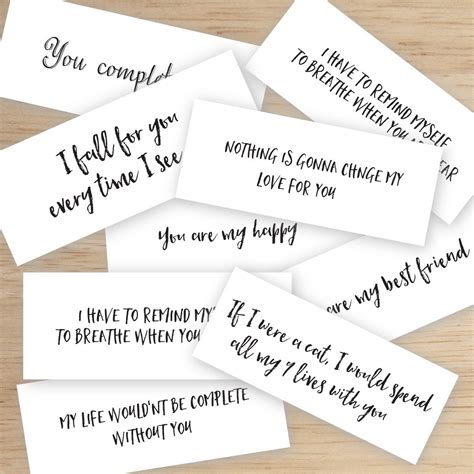 You complet
I HAVE TO REMIND MYSELF
TO BREATHE WHEN YOU
EAR
I fall for you
every time I see
NOTHING IS GONNA CHNGE MY
LOVE FOR YOU
You are my happy
are my best friend
I HAVE TO REMIND MYS
TO BREATHE WHEN YOU
If I were a cat, I would spend
all my 9 lives with you
MY LIFE WOULD'NT BE COMPLETE
WITHOUT YOU